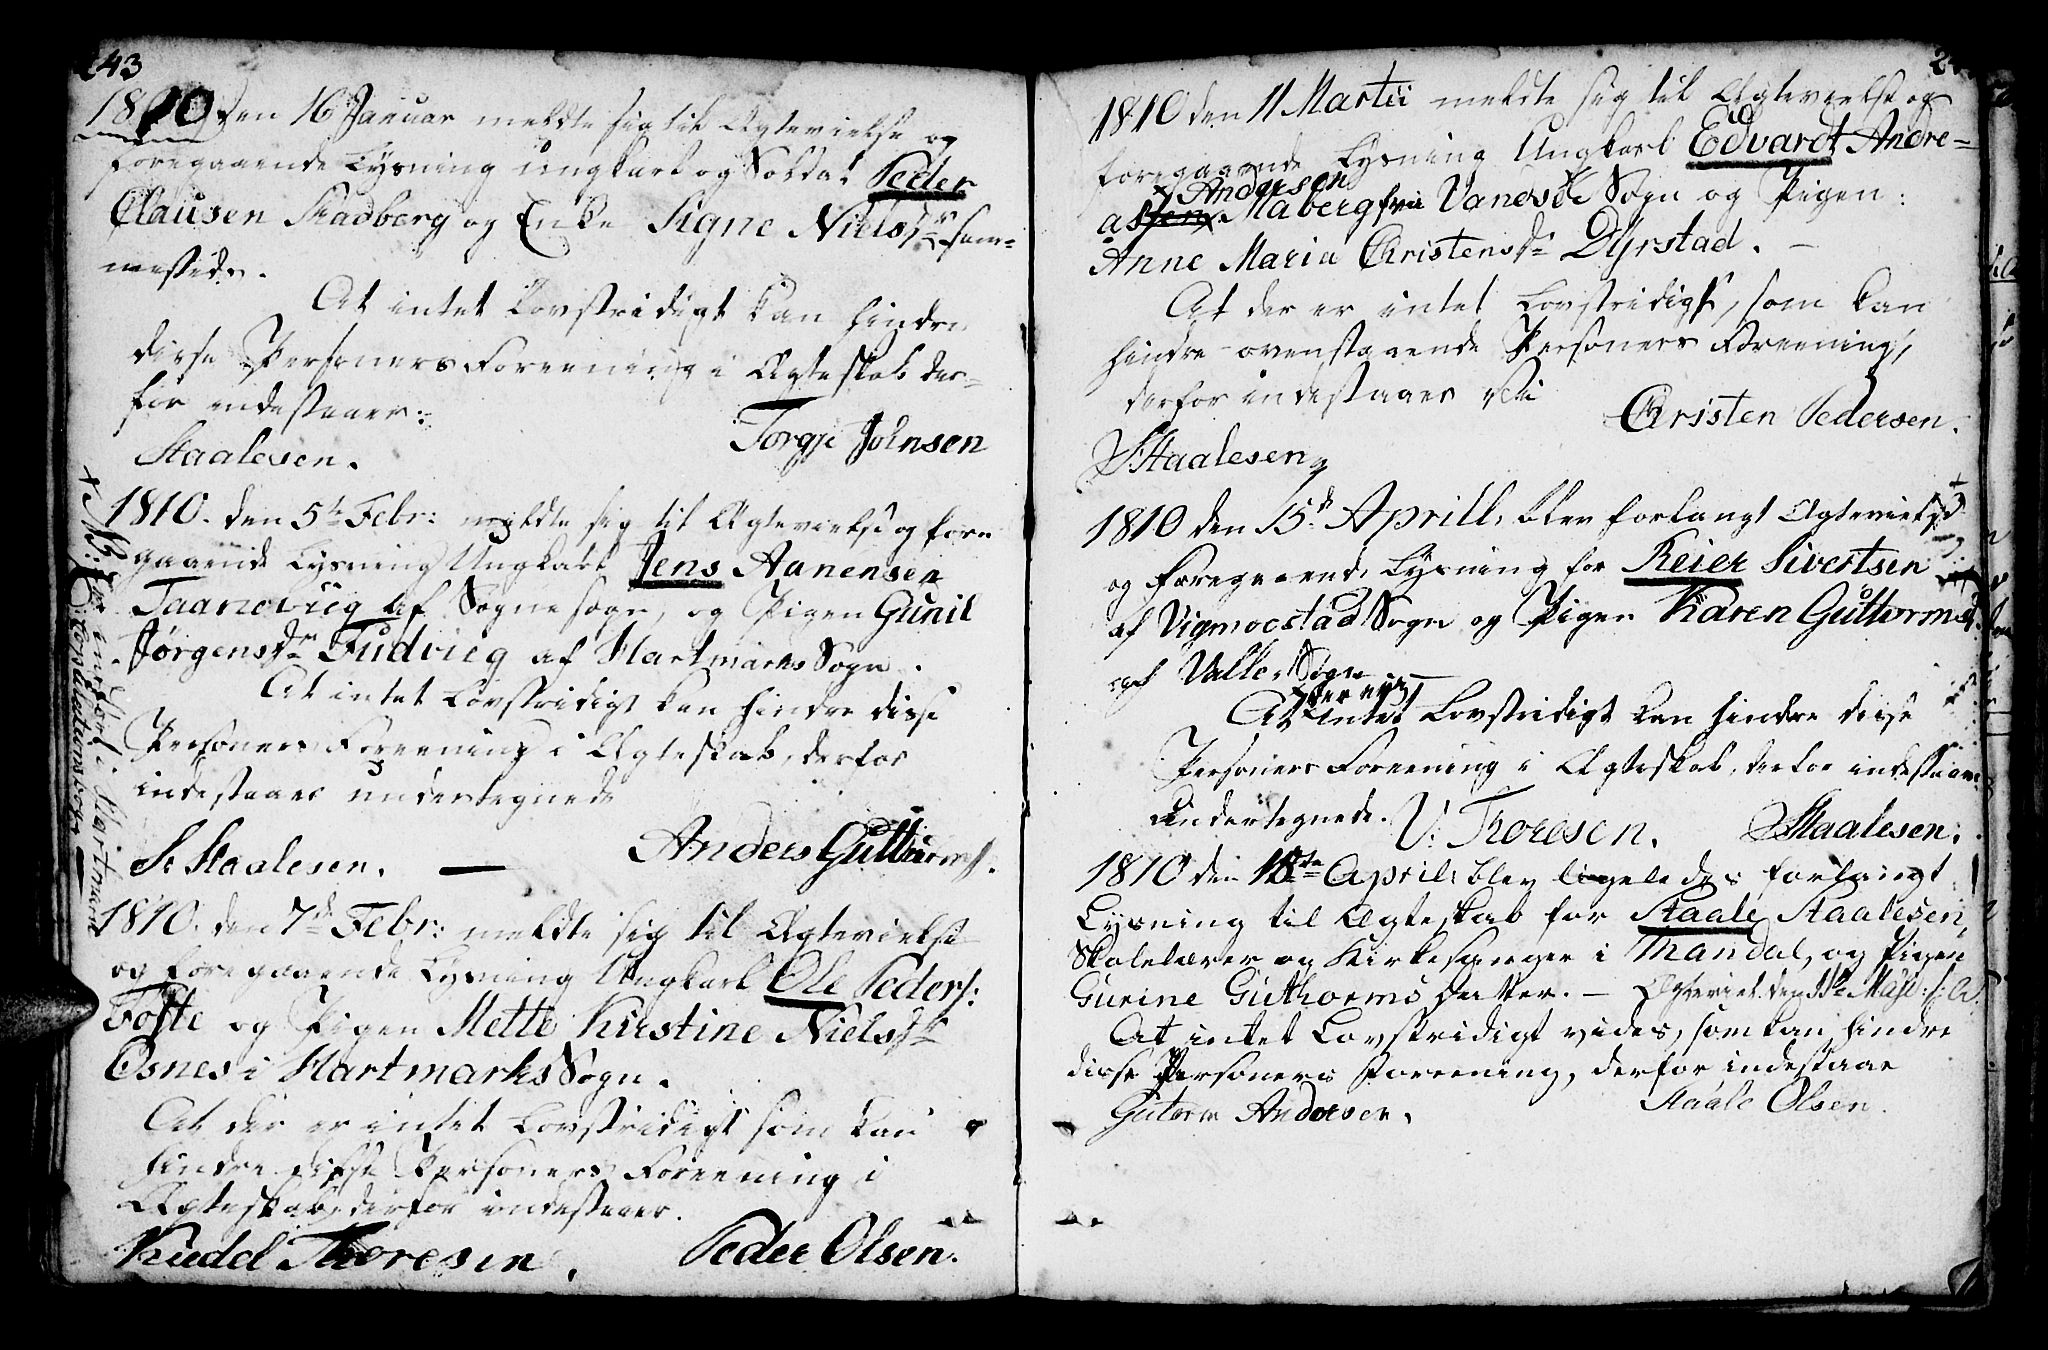 243
1810 den 16 Januar meldte sig til Ægtevielse og
foregaaende Lysning ungkarl og Soldat Peder
Clausen Skadberg og Enke Signe Nielsdr sam-
mesteds.
At intet Lovstridigt kan hindre
disse Personers Foreening i Ægteskab der-
for indestaaer:
Staalesen. Torgje Johnsen
1810. den 5te Febr: meldte sig til Ægtevielse og fore
gaaende Lysning Ungkarl Jens Aanensen
Taanevig af Sogne sogn, og Pigen Gunil
Jørgensdr Fudvieg af Hartmarks Sogn.
At intet Lovstridigt kan hindre disse
Personers Foreening i Ægteskab, derfor
indestaaer undertegnede
S. Staalesen. — Anders Gutturms.
1810. den 7de Febr: meldte sig til Ægtevielse
og foregaaende Lysning Ungkarl Ole Peders:
Foste og Pigen Mette Kirstine Nielsdr
Osnes i Hartmarks Sogn.
At der er intet Lovstridigt som kan
hindre disse Personers Foreening i
Ægteskab, derfor indestaaer.
Knudel Thoresen, Peder Olsen.
NB: indført i Hartmark
Copulationsbog
24
1810 den 11 Martii meldte sig til Ægtevielse og
foregaaende Lysning Ungkarl Edvardt Andre-
Andersen
assen Maberg fra Vandsøe Sogn og Pigen:
Anne Maria Christensdr Dyrstad. —
At der er intet Lovstridigt, som kan
hindre ovenstaaende Personers Foreening,
derfor indestaaer vi
Christen Pedersen.
S Staalesen
1810 den 15de Aprill, blev forlangt Ægtevielse
og Foregaaende Lysning for Reier Sivertsen
af Vigmoestad Sogn og Pigen Karen Guttormsd.
af Valle Sogn
At intet Lovstridigt kan hindre disse
Personers Foreening i Ægteskab, derfor indestaaer
Undertegnede. V: Thoresen. S Staalesen.
1810 den 18te April, blev ligeledes forlangt
Lysning til Ægteskab for Staale Staalesen,
Skolelærer og Kirkesanger i Mandal, og Pigen
Gurine Guthorms Datter. — Ægteviet den Maji
At intet Lovstridigt vides, som kan hindre
disse Personers Foreening, derfor indestaaer
Gutorm Andersen. Staale Olsen.